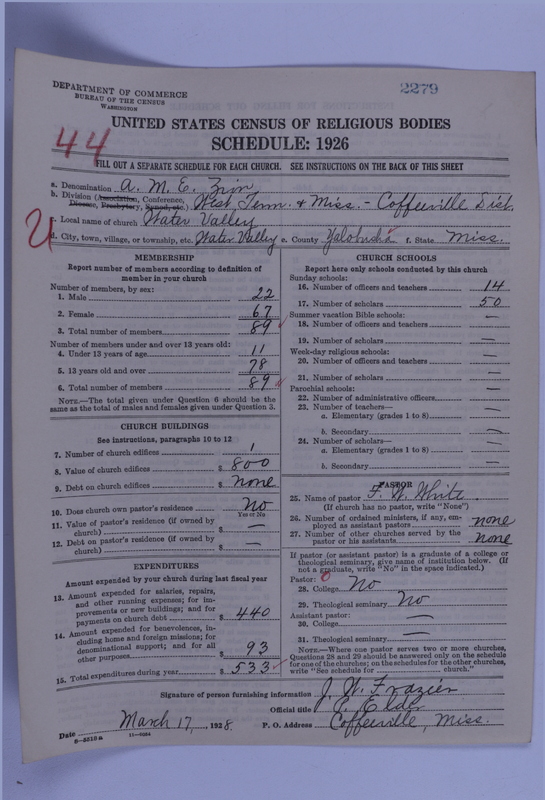 2279
DEPARTMENT OF COMMERCE
BUREAU OF THE CENSUS
WASHINGTON
UNITED STATES CENSUS OF RELIGIOUS BODIES
SCHEDULE: 1926
44
FILL OUT A SEPARATE SCHEDULE FOR EACH CHURCH. SEE INSTRUCTIONS ON THE BACK OF THIS SHEET
a. Denomination A. M. E. Zion
b. Division (Association, Conference, Diocese, Presbytery, Synod, etc.) West Tenn. & Miss. - Coffeeville Dist.
c. Local name of church Water Valley
d. City, town, village, or township, etc. Water Valley e. County Yalobusha f. State Miss.
MEMBERSHIP
Report number of members according to definition of
member in your church
Number of members, by sex:
1. Male 22
2. Female 67
3. Total number of members 89
Number of members under and over 13 years old:
4. Under 13 years of age 11
5. 13 years old and over 78
6. Total number of members 89
NOTE.—The total given under Question 6 should be the
same as the total of males and females given under Question 3.
CHURCH BUILDINGS
See instructions, paragraphs 10 to 12
7. Number of church edifices 1
8. Value of church edifices $ 800
9. Debt on church edifices $ none
10. Does church own pastor's residence No
Yes or No
11. Value of pastor's residence (if owned by
church) $ —
12. Debt on pastor's residence (if owned by
church) $ —
EXPENDITURES
Amount expended by your church during last fiscal year
13. Amount expended for salaries, repairs,
and other running expenses; for im-
provements or new buildings; and for
payments on church debt $ 440
14. Amount expended for benevolences, in-
cluding home and foreign missions; for
denominational support; and for all
other purposes $ 93
15. Total expenditures during year $ 533
CHURCH SCHOOLS
Report here only schools conducted by this church
Sunday schools:
16. Number of officers and teachers 14
17. Number of scholars 50
Summer vacation Bible schools:
18. Number of officers and teachers —
19. Number of scholars —
Week-day religious schools:
20. Number of officers and teachers —
21. Number of scholars —
Parochial schools:
22. Number of administrative officers —
23. Number of teachers—
a. Elementary (grades 1 to 8) —
b. Secondary —
24. Number of scholars—
a. Elementary (grades 1 to 8) —
b. Secondary —
PASTOR
25. Name of pastor F. W. White
(If church has no pastor, write "None")
26. Number of ordained ministers, if any, em-
ployed as assistant pastors none
27. Number of other churches served by the
pastor or his assistants none
If pastor (or assistant pastor) is a graduate of a college or
theological seminary, give name of institution below. (If
not a graduate, write "No" in the space indicated.)
Pastor:
28. College No
29. Theological seminary No
Assistant pastor:
30. College —
31. Theological seminary —
NOTE.—Where one pastor serves two or more churches,
Questions 28 and 29 should be answered only on the schedule
for one of the churches; on the schedules for the other churches,
write "See schedule for church."
Signature of person furnishing information J. W. Frazier
Official title P. Elder
Date March 17, 1928. P. O. Address Coffeeville, Miss.
8-5318a 11-9084